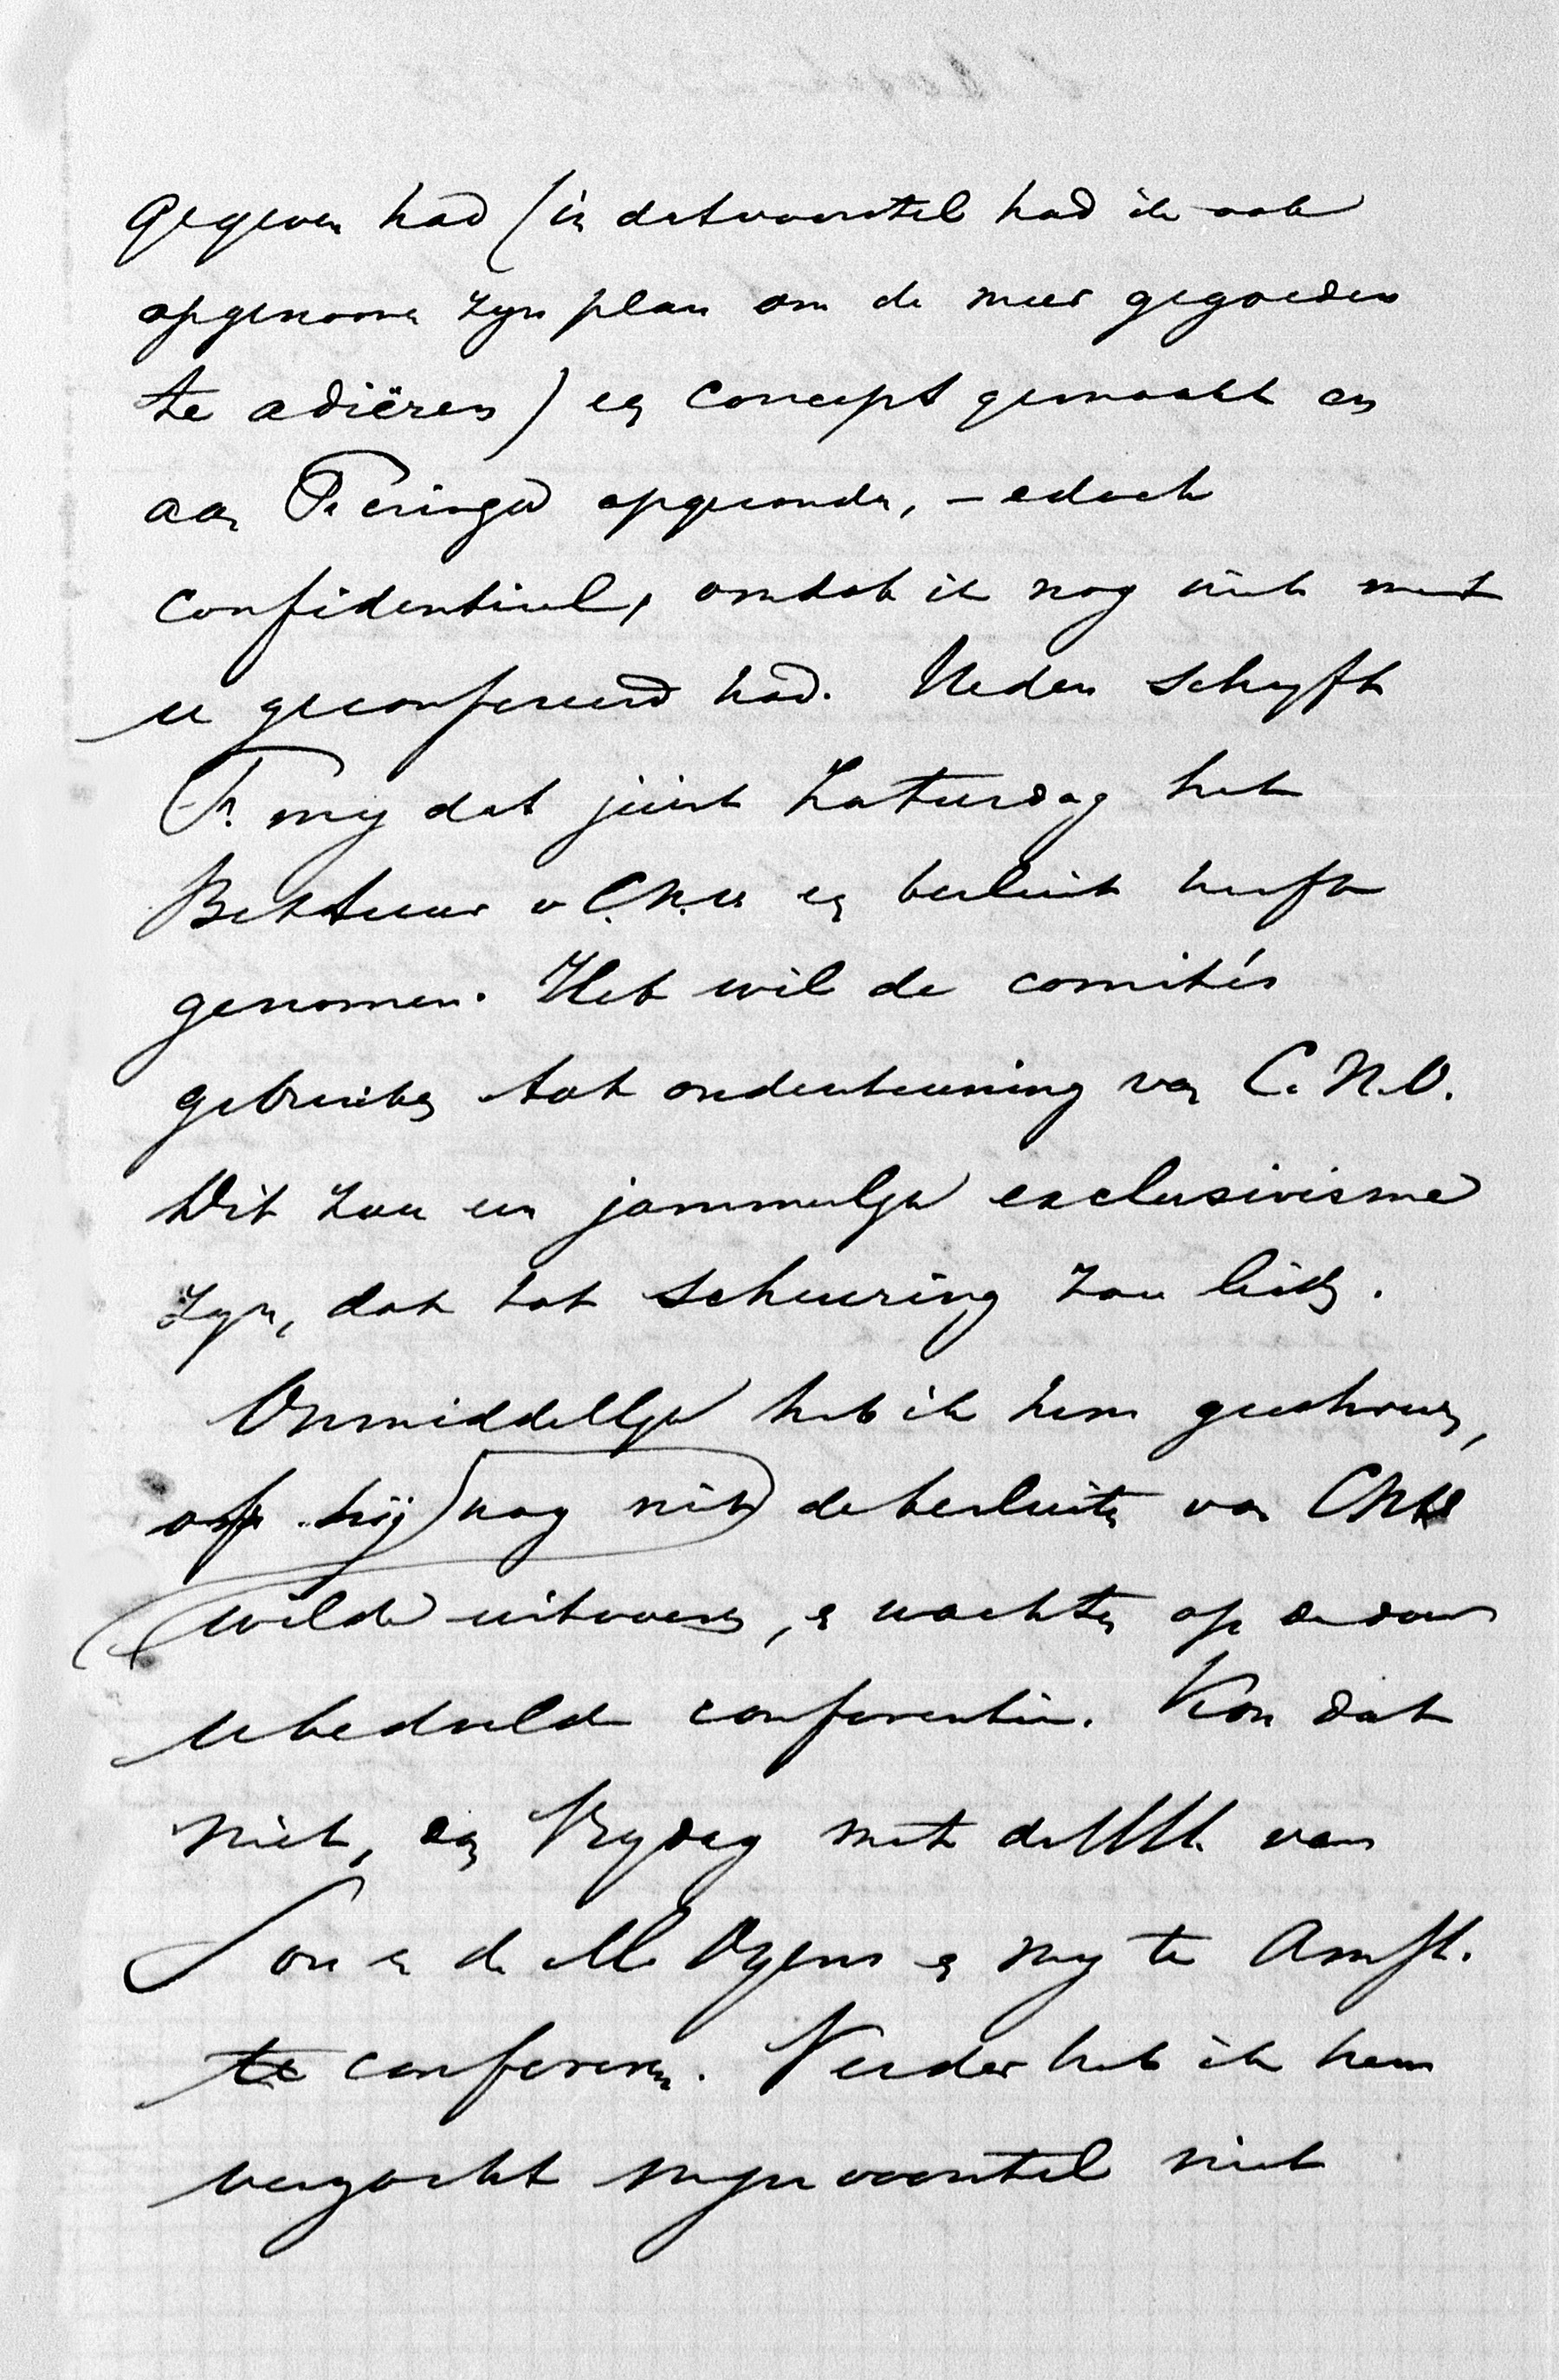 gegeven had (in dat voorstel had ik ook
opgenomen zyn plan om de meer gegoeden
te adiëren) een concept gemaakt en
aan Feringa opgezonden, – edoch
confidentieel, omdat ik nog niet met
u geconfereerd had. Heden schryft
F. my dat juist Zaturdag het
Bestuur v C.N.O. een besluit heeft
genomen. Het wil de comités
gebruiken tot ondersteuning van C.N.O.
Dit zou een jammerlyk exclusivisme
zyn, dat tot scheuring zou leiden.
Onmiddellyk heb ik hem geschreven,
of hij nog niet de besluiten van CNO
wilde uitvoeren, en wachten op de door
u bedoelde conferentie. Kon dat
niet, dan Vrydag met de HH. van
Son en de M. Oyens en my te Amst.
te confereren. Verder heb ik hem
verzocht myn voorstel niet